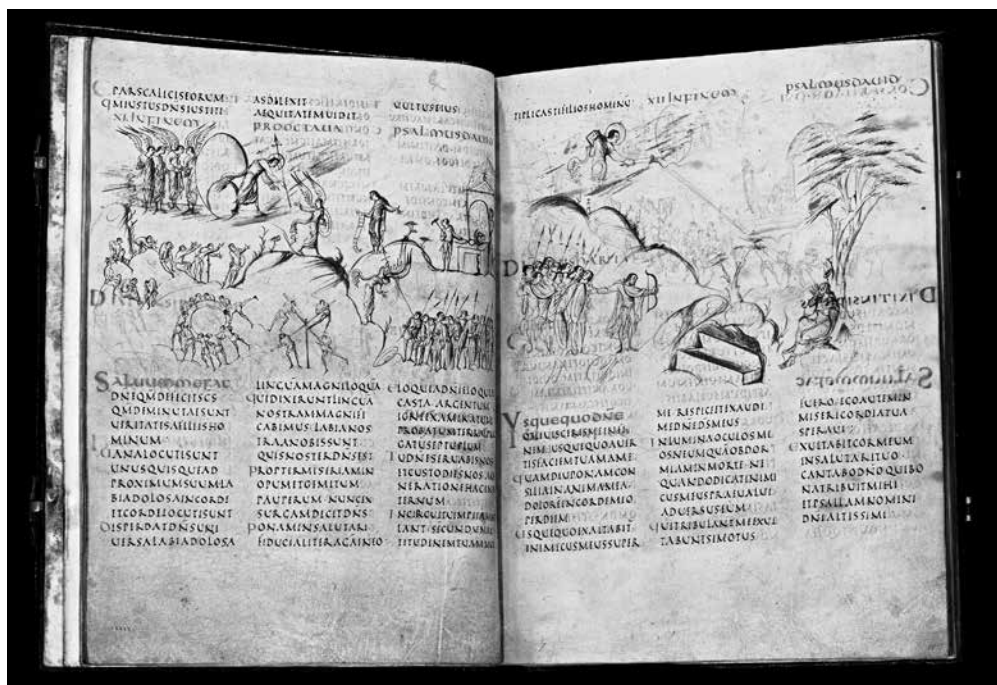 PARSCALICISEORUM
QMIUSTUSDNSIUSTITI
ASDILEXIT
AEQUITATEMUIDIT
UULTUSEIUS
XIINFINEM PROOCTAUA PSALMUSDAUID
SALUUMMEFAC
DNEQMDEFICITSCS
QMDIMINUTAESUNT
UERITATESAFILIISHO
MINUM
UANALOCUTISUNT
UNUSQUISQUEAD
PROXIMUMSUUMLA
BIADOLOSAINCORDE
ETCORDELOCUTISUNT
DISPERDATDNSUNI
UERSALABIADOLOSA
LINGUAMAGNILOQUA
QUIDIXERUNTLINGUA
NOSTRAMMAGNIFI
CABIMUSLABIANOS
TRAANOBISSUNT
QUISNOSTERDNSEST
PROPTERMISERIAMIN
OPUMETGEMITUM
PAUPERUMNUNCEX
SURGAMDICITDNS
PONAMINSALUTARI
FIDUCIALITERAGAMINEO
ELOQUIADNIELOQUIA
CASTAARGENTUM
IGNEEXAMINATUM
PROBATUMTERRAEPUR
GATUMSEPTUPLUM
TUDNESERUABISNOS
ETCUSTODIESNOSAGE
NERATIONEHACINAE
TERNUM
INCIRCUITUIMPIIAMBU
LANTSECUNDUMAL
TITUDINEMTUAMMUL
TIPLICASTIFILIOSHOMINU
XIIINFINEM PSALMUSDAUID
USQUEQUODNE
OBLIUISCERISMEINFI
NEMUSQUEQUOAUER
TISFACIEMTUAMAME
QUAMDIUPONAMCON
SILIAINANIMAMEA
DOLOREINCORDEMEO
PERDIEM
USQUEQUOEXALTABIT
INIMICUSMEUSSUPER
MERESPICEETEXAUDI
MEDNEDSMEUS
INLUMINAOCULOSME
OSNEUMQUAOBDOR
MIAMINMORTENE
QUANDODICATINIMI
CUSMEUSPRAEUALUI
ADUERSUSEUM
QUITRIBULANTMEEXUL
TABUNTSIMOTUS
FUEROEGOAUTEMIN
MISERICORDIATUA
SPERAUI
EXULTABITCORMEUM
INSALUTARITUO
CANTABODNOQUIBO
NATRIBUITMIHI
ETPSALLAMNOMINI
DNIALTISSIMI